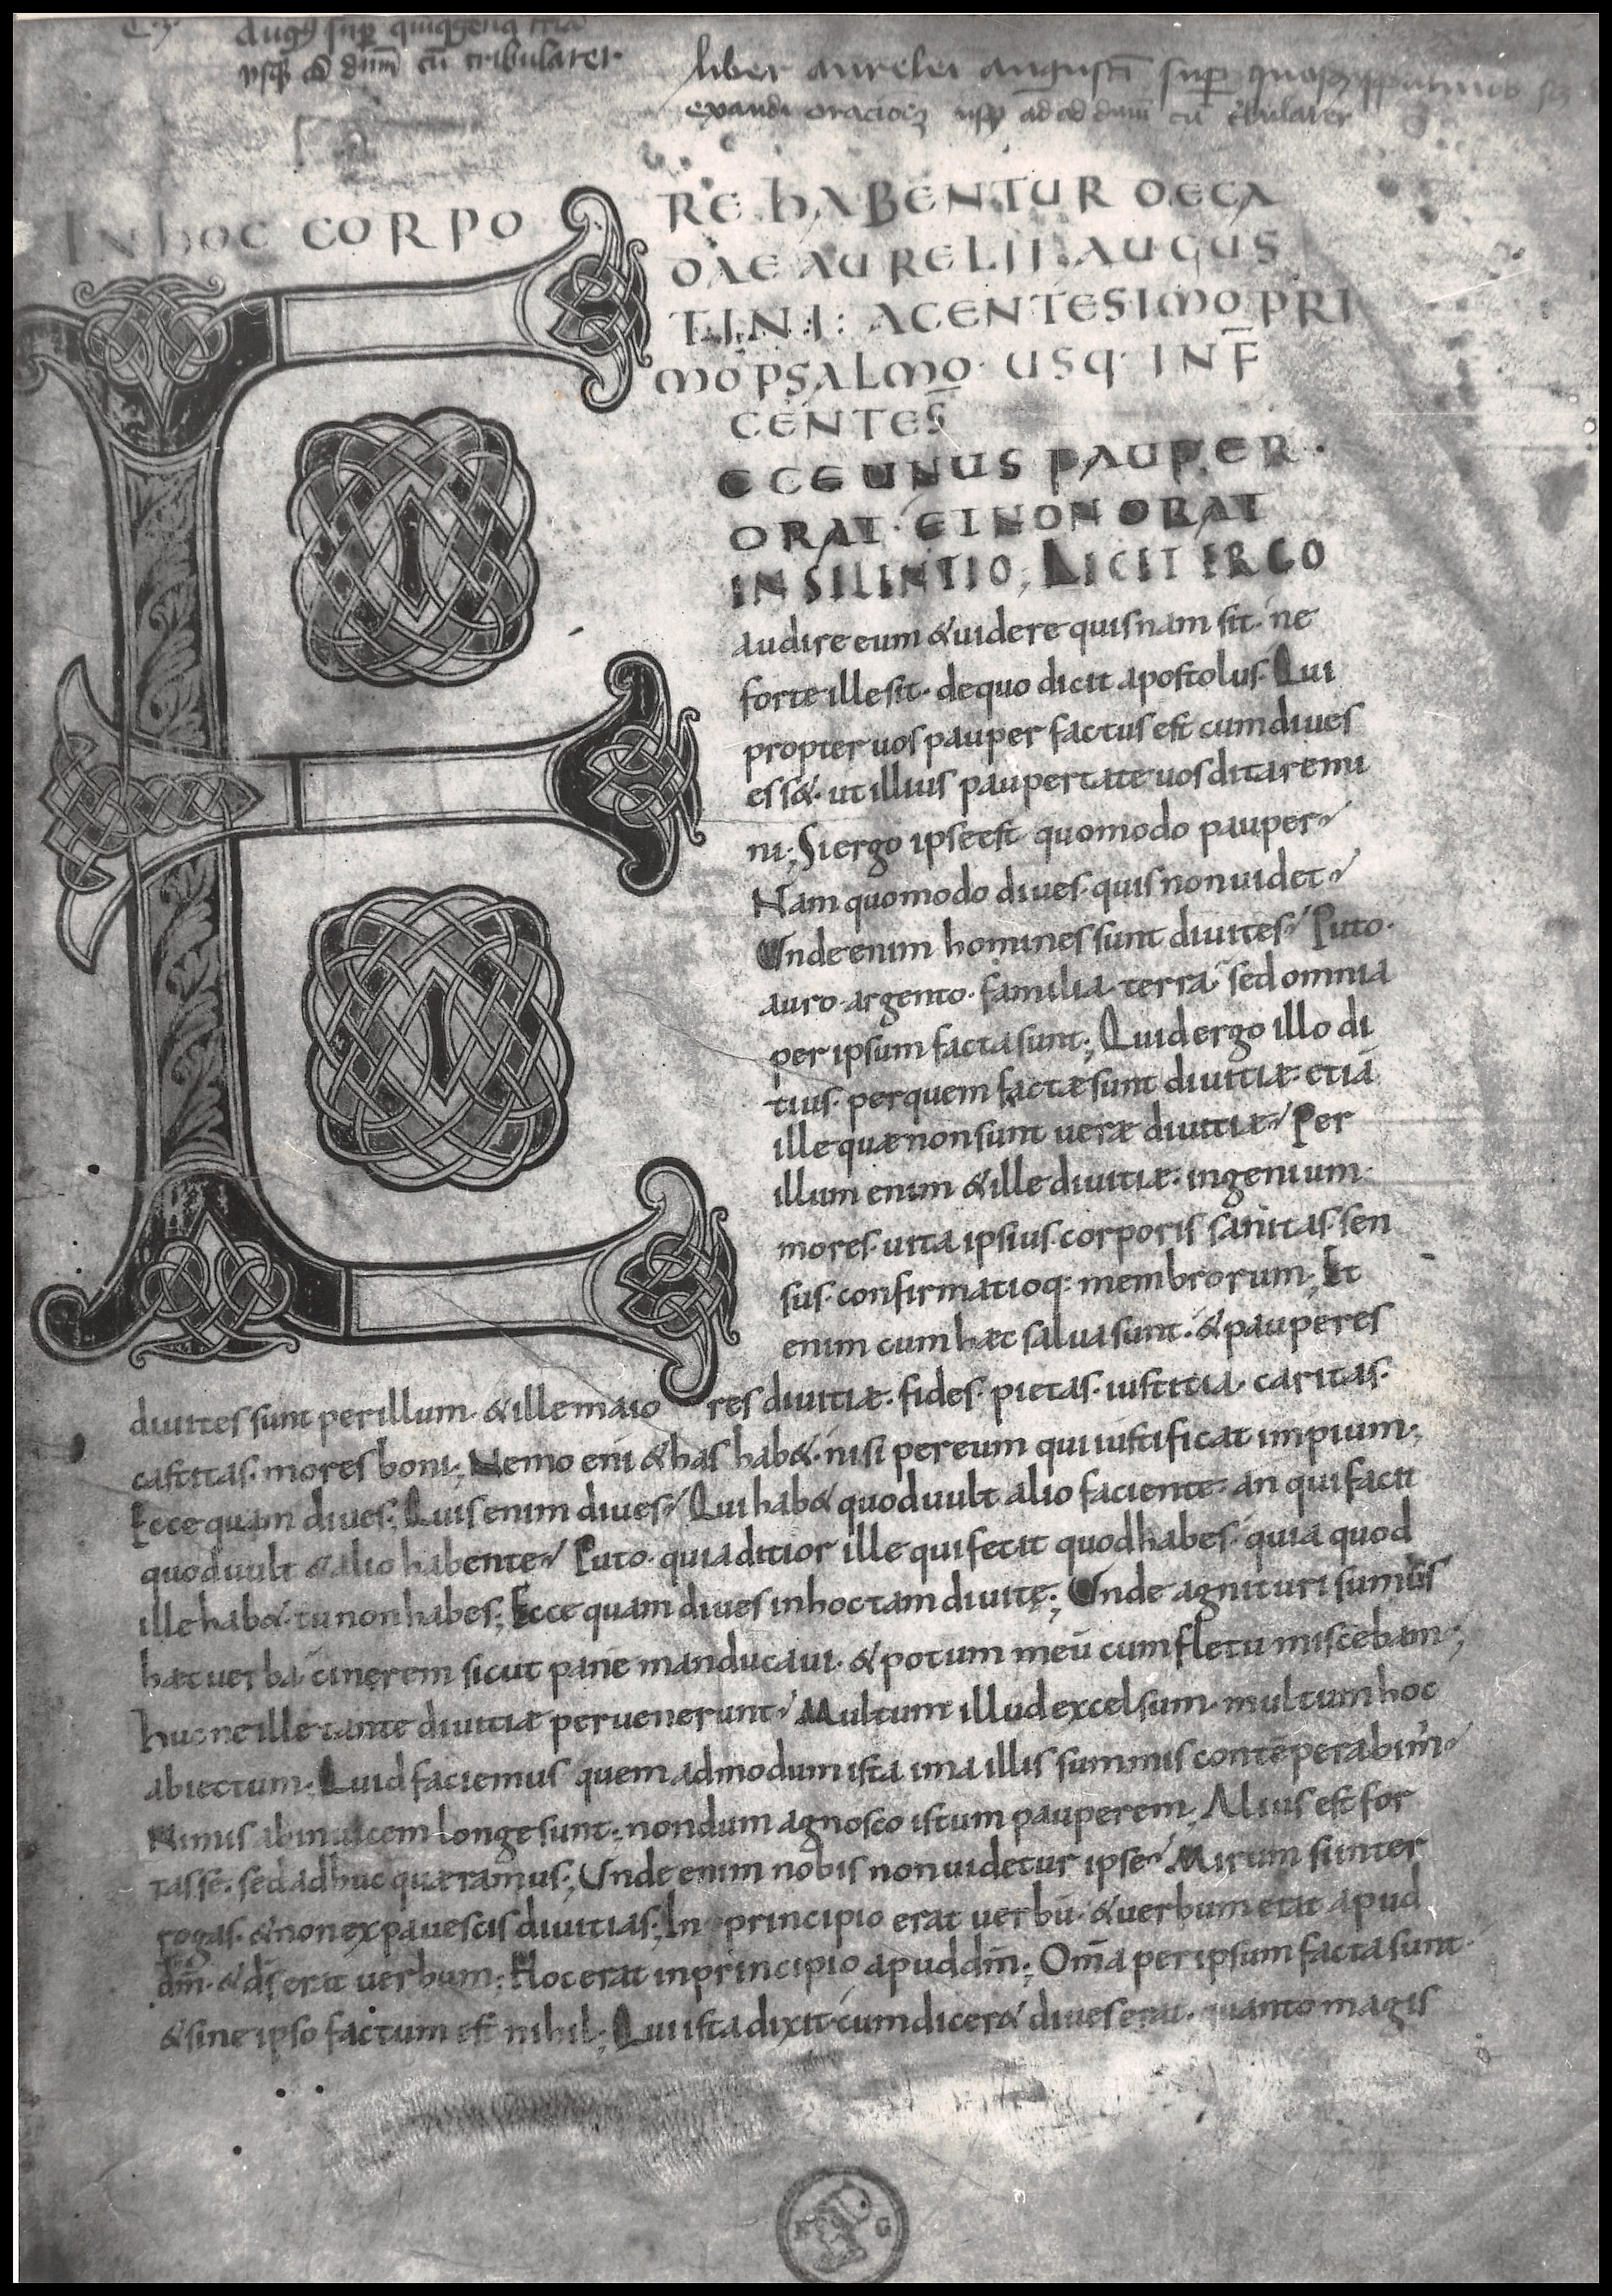 augꝰ sup quiqgena tria
usqꝫ ad dūm cū tribularer
liber aurelei augusti sup
exaudi oracioēꝫ usqꝫ ad ad dūm cū tribularer
IN hOC CORPO
RE hABENTUR DECA
DAE AURELII AUGUS
TINI: A CENTESIMO PRI
MO PSALMO· USQ· IN F̄
CENTES̄
E
CCE UNUS PAUPER·
ORAT· ET NON ORAT
IN SILENTIO; LICET ERGO
audire eum & uidere quisnam sit· ne
forte ille sit· de quo dicit apostolus· Qui
propter uos pauper factus est cum diues
ess&· ut illius paupertate uos ditaremi
ni; Si ergo ipse est quomodo pauper?
Nam quomodo diues· quis non uidet?
Unde enim homines sunt diuites? Puto·
auro· argento· familia· terra· sed omnia
per ipsum facta sunt; Quid ergo illo di
tius· per quem factæ sunt diuitiæ· etiā
ille quæ non sunt ueræ diuitiæ? Per
illum enim & ille diuitiæ· ingenium·
mores· uita ipsius· corporis sanitas· sen
sus· confirmatioq· membrorum; Et
enim cum hæc salua sunt· & pauperes
diuites sunt per illum· & ille maio res diuitiæ· fides· pietas· iustitia· caritas·
castitas· mores boni; Nemo eni & has hab&· nisi per eum qui iustificat impium;
Ecce quam diues; Quis enim diues? Qui hab& quod uult alio faciente· an qui facit
quod uult & alio habente? Puto· quia ditior ille qui fecit quod habes· quia quod
ille hab&· tu non habes; Ecce quam diues in hoc tam diuite; Unde agnituri sumus
hæc uerba· cinerem sicut pane manducaui· & potum meū cum fletu miscebam;
huc ne ille tante diuitiæ peruenerunt? Multum illud excelsum· multum hoc
abiectum; Quid faciemus quem admodum ista ima illis summis contēperabim̄?
Nimis ab inuicem longe sunt; nondum agnosco istum pauperem; Alius est for
tasse· sed adhuc quæramus; Unde enim nobis non uidetur ipse? Mirum si inter
rogas· & non expauescis diuitias; In principio erat uerbū· & uerbum erat apud
dm̄· & ds̄ erat uerbum; Hoc erat in principio apud dm̄; Om̄a per ipsum facta sunt·
& sine ipso factum est nihil; Qui ista dixit· cum dicer& diues erat· quanto magis